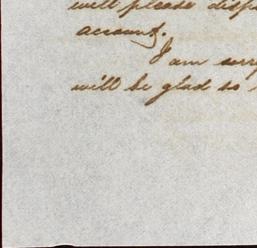 will please disp
account.
I am sorry
will be glad to